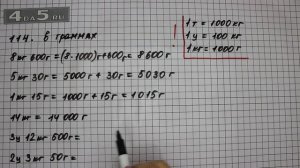 4DA5.RU
114. в граммах
8 кг 600г = (8·1000)г+600г = 8600г
5 кг 30г = 5000г + 30г = 5030г
1 кг 15г = 1000г + 15г = 1015г
14 кг = 14 000 г
3ц 12 кг 500г =
2ц 3 кг 50г =
1 т = 1000 кг
1 ц = 100 кг
1 кг = 1000 г